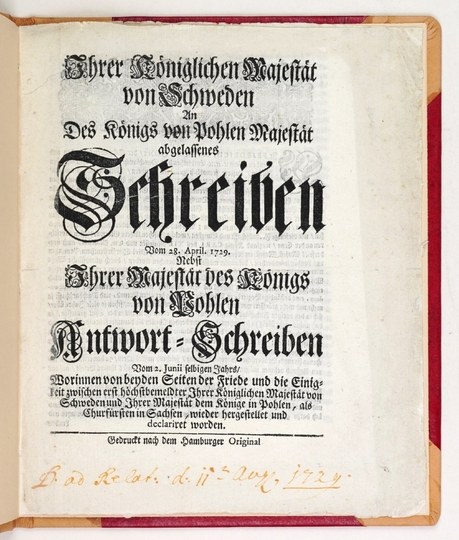 Ihrer Königlichen Majestät
von Schweden
An
Des Königs von Pohlen Majestät
abgelassenes
Schreiben
Vom 28. April. 1729.
Nebst
Ihrer Majestät des Königs
von Pohlen
Antwort-Schreiben
Vom 2. Junii selbigen Jahrs/
Worinnen von beyden Seiten der Friede und die Einig-
keit zwischen erst höchstbemeldter Ihrer Königlichen Majestät von
Schweden und Ihrer Majestät dem Könige in Pohlen, als
Churfürsten in Sachsen, wieder hergestellet und
declariret worden.
Gedruckt nach dem Hamburger Original
ad Relat. d. 11 Aug. 1729.